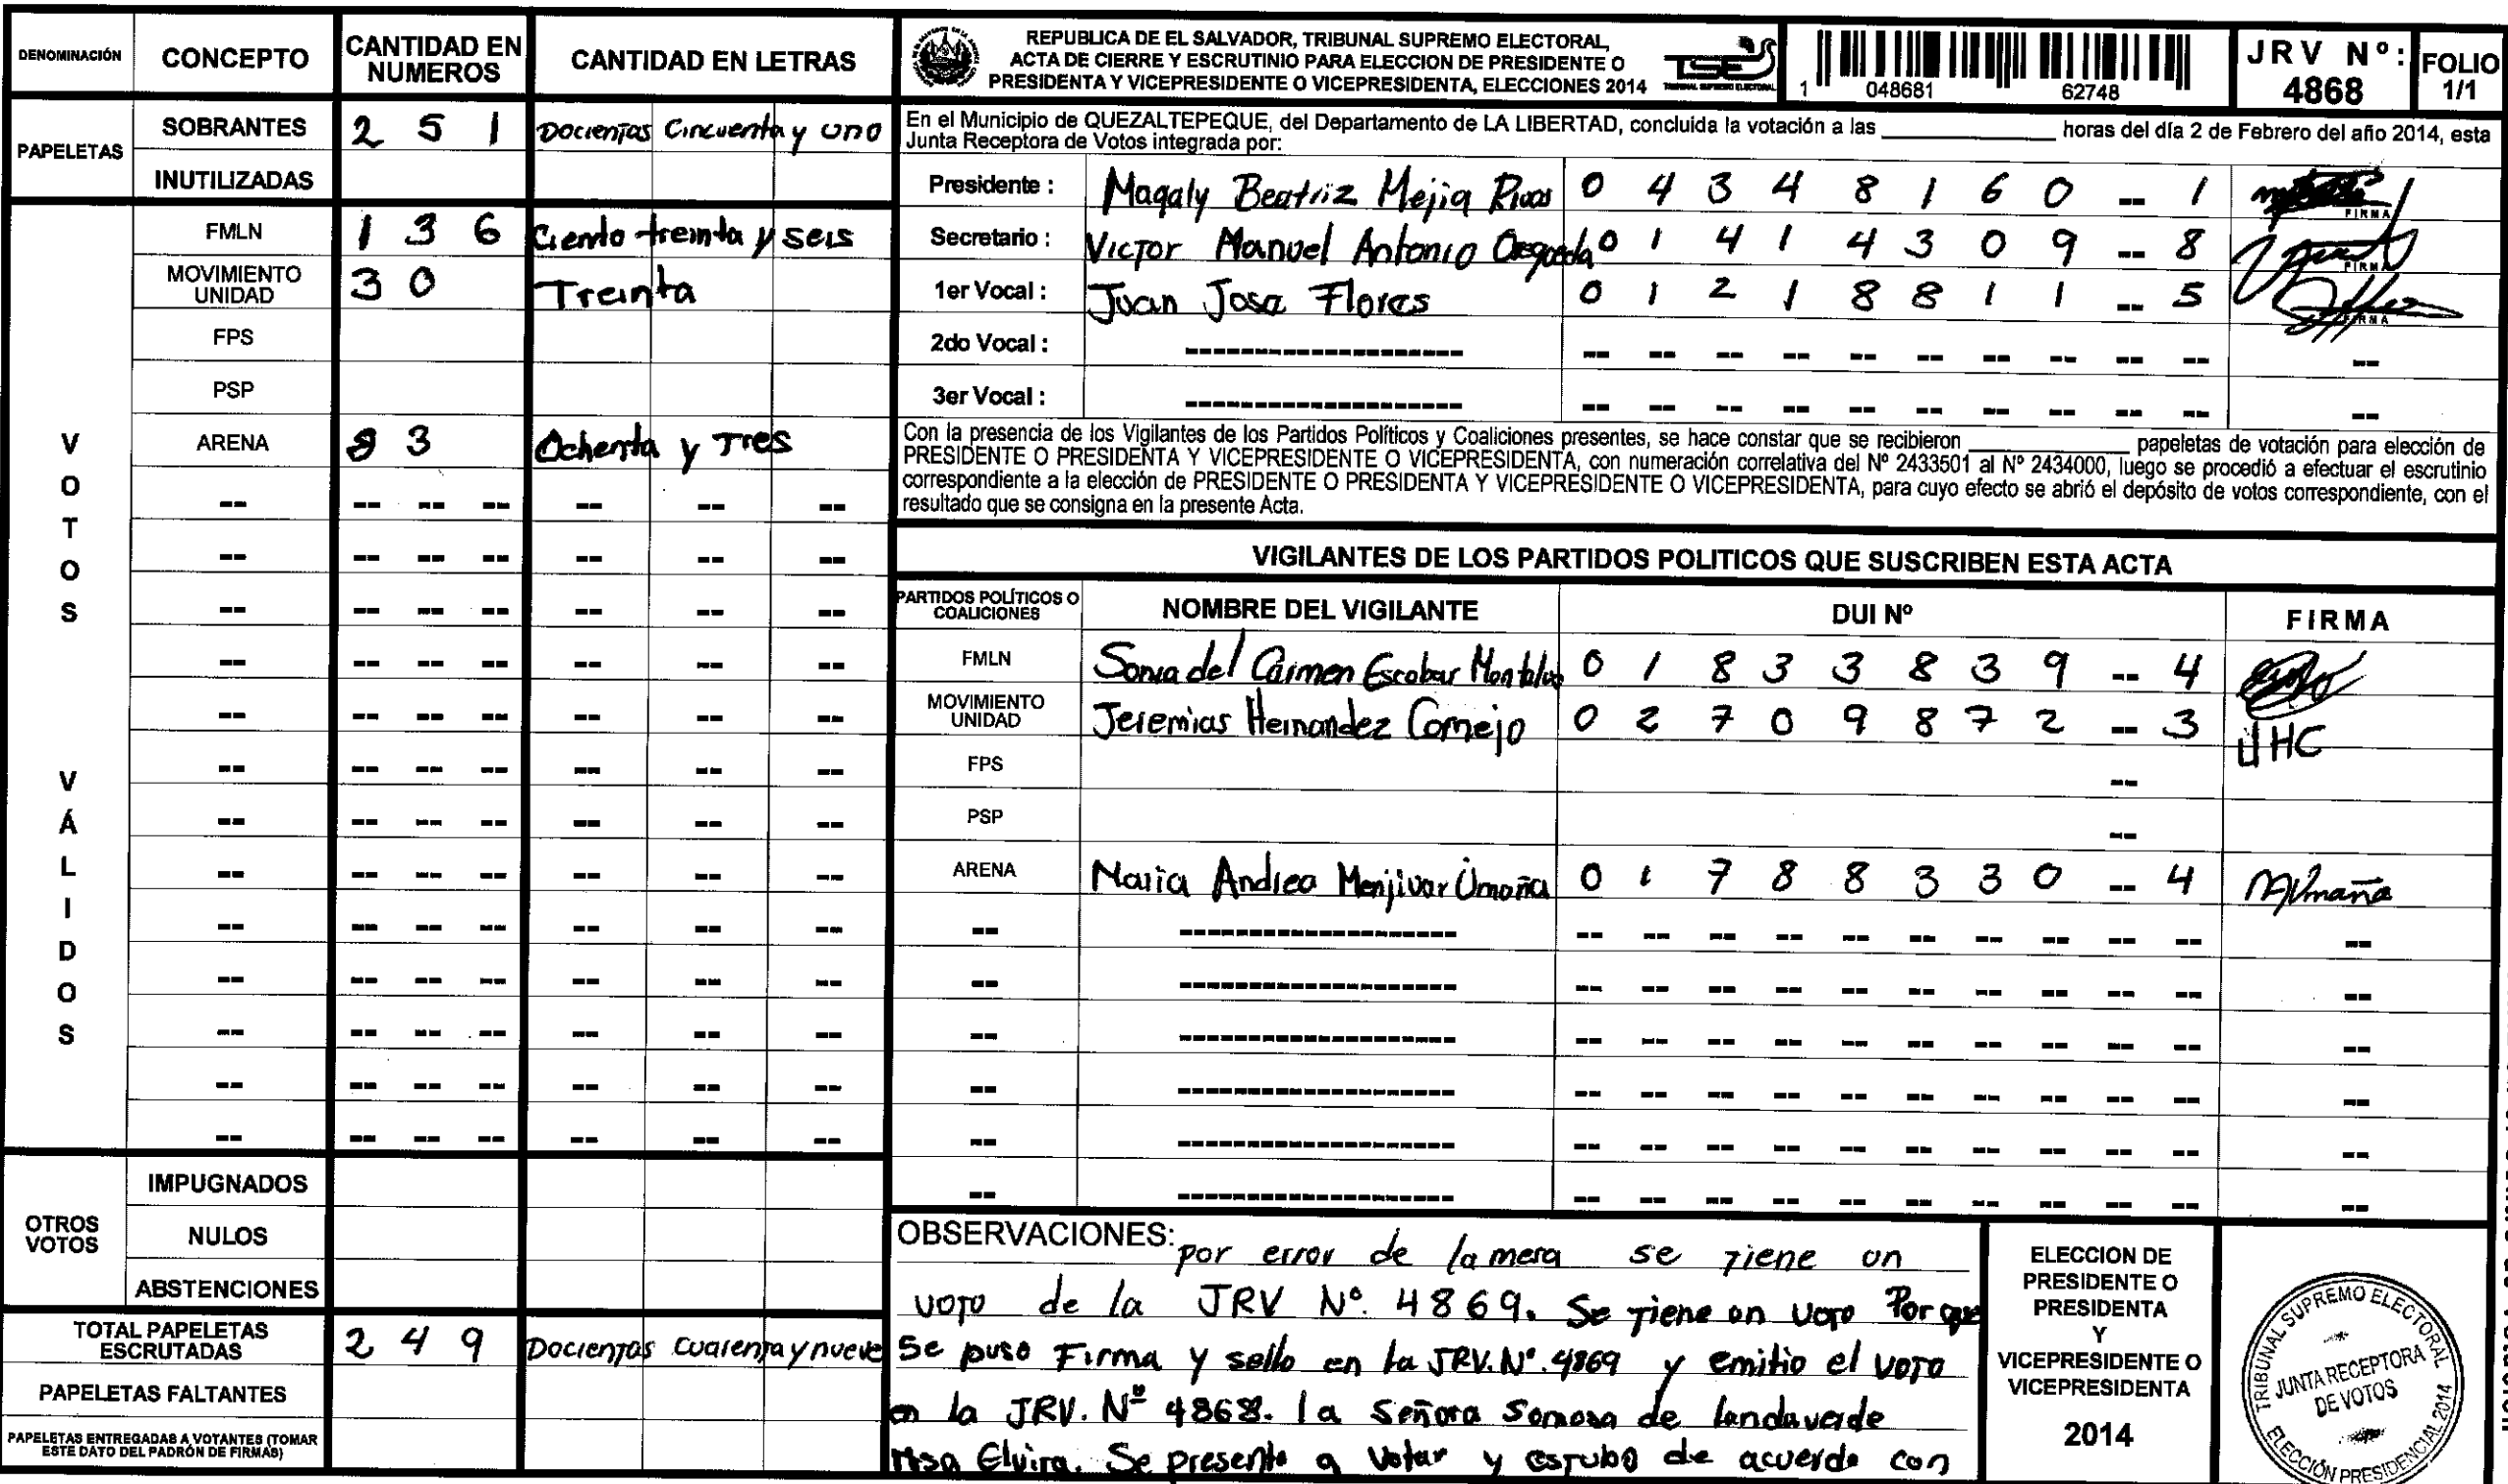 DENOMINACIÓN CONCEPTO CANTIDAD EN NUMEROS CANTIDAD EN LETRAS
PAPELETAS
SOBRANTES 2 5 1 Docientas Cincuenta y uno
INUTILIZADAS
VOTOS VÁLIDOS
FMLN 1 3 6 Ciento treinta y seis
MOVIMIENTO UNIDAD 3 0 Treinta
FPS
PSP
ARENA 8 3 Ochenta y Tres
OTROS VOTOS
IMPUGNADOS
NULOS
ABSTENCIONES
TOTAL PAPELETAS ESCRUTADAS 2 4 9 Docientas cuarenta y nueve
PAPELETAS FALTANTES
PAPELETAS ENTREGADAS A VOTANTES (TOMAR ESTE DATO DEL PADRÓN DE FIRMAS)
REPUBLICA DE EL SALVADOR, TRIBUNAL SUPREMO ELECTORAL,
ACTA DE CIERRE Y ESCRUTINIO PARA ELECCION DE PRESIDENTE O
PRESIDENTA Y VICEPRESIDENTE O VICEPRESIDENTA, ELECCIONES 2014
TSE
TRIBUNAL SUPREMO ELECTORAL
1 048681 62748
JRV Nº: 4868
FOLIO 1/1
En el Municipio de QUEZALTEPEQUE, del Departamento de LA LIBERTAD, concluida la votación a las ________ horas del día 2 de Febrero del año 2014, esta
Junta Receptora de Votos integrada por:
Presidente : Magaly Beatriz Mejia Rivas 0 4 3 4 8 1 6 0 -- 1 FIRMA
Secretario : Victor Manuel Antonio 0 1 4 1 4 3 0 9 -- 8 FIRMA
1er Vocal : Juan Jose Flores 0 1 2 1 8 8 1 1 -- 5 FIRMA
2do Vocal :
3er Vocal :
Con la presencia de los Vigilantes de los Partidos Políticos y Coaliciones presentes, se hace constar que se recibieron ________ papeletas de votación para elección de
PRESIDENTE O PRESIDENTA Y VICEPRESIDENTE O VICEPRESIDENTA, con numeración correlativa del Nº 2433501 al Nº 2434000, luego se procedió a efectuar el escrutinio
correspondiente a la elección de PRESIDENTE O PRESIDENTA Y VICEPRESIDENTE O VICEPRESIDENTA, para cuyo efecto se abrió el depósito de votos correspondiente, con el
resultado que se consigna en la presente Acta.
VIGILANTES DE LOS PARTIDOS POLITICOS QUE SUSCRIBEN ESTA ACTA
PARTIDOS POLÍTICOS O COALICIONES NOMBRE DEL VIGILANTE DUI Nº FIRMA
FMLN Sonia del Carmen Escobar 0 1 8 3 3 8 3 9 -- 4
MOVIMIENTO UNIDAD Jeremias Hernandez Cornejo 0 2 7 0 9 8 7 2 -- 3 JHC
FPS --
PSP --
ARENA Maria Andrea Menjivar Umaña 0 1 7 8 8 3 3 0 -- 4 MUmaña
OBSERVACIONES: por error de la mesa se tiene un
voto de la JRV Nº. 4869. Se tiene un voto Por que
Se puso Firma y sello en la JRV. Nº. 4869 y emitio el voto
en la JRV. Nº 4868. la Señora Somosa de landaverde
Elvira. Se presento a votar y estubo de acuerdo con
ELECCION DE
PRESIDENTE O
PRESIDENTA
Y
VICEPRESIDENTE O
VICEPRESIDENTA
2014
TRIBUNAL SUPREMO ELECTORAL
JUNTA RECEPTORA
DE VOTOS
ELECCIÓN PRESIDENCIAL 2014